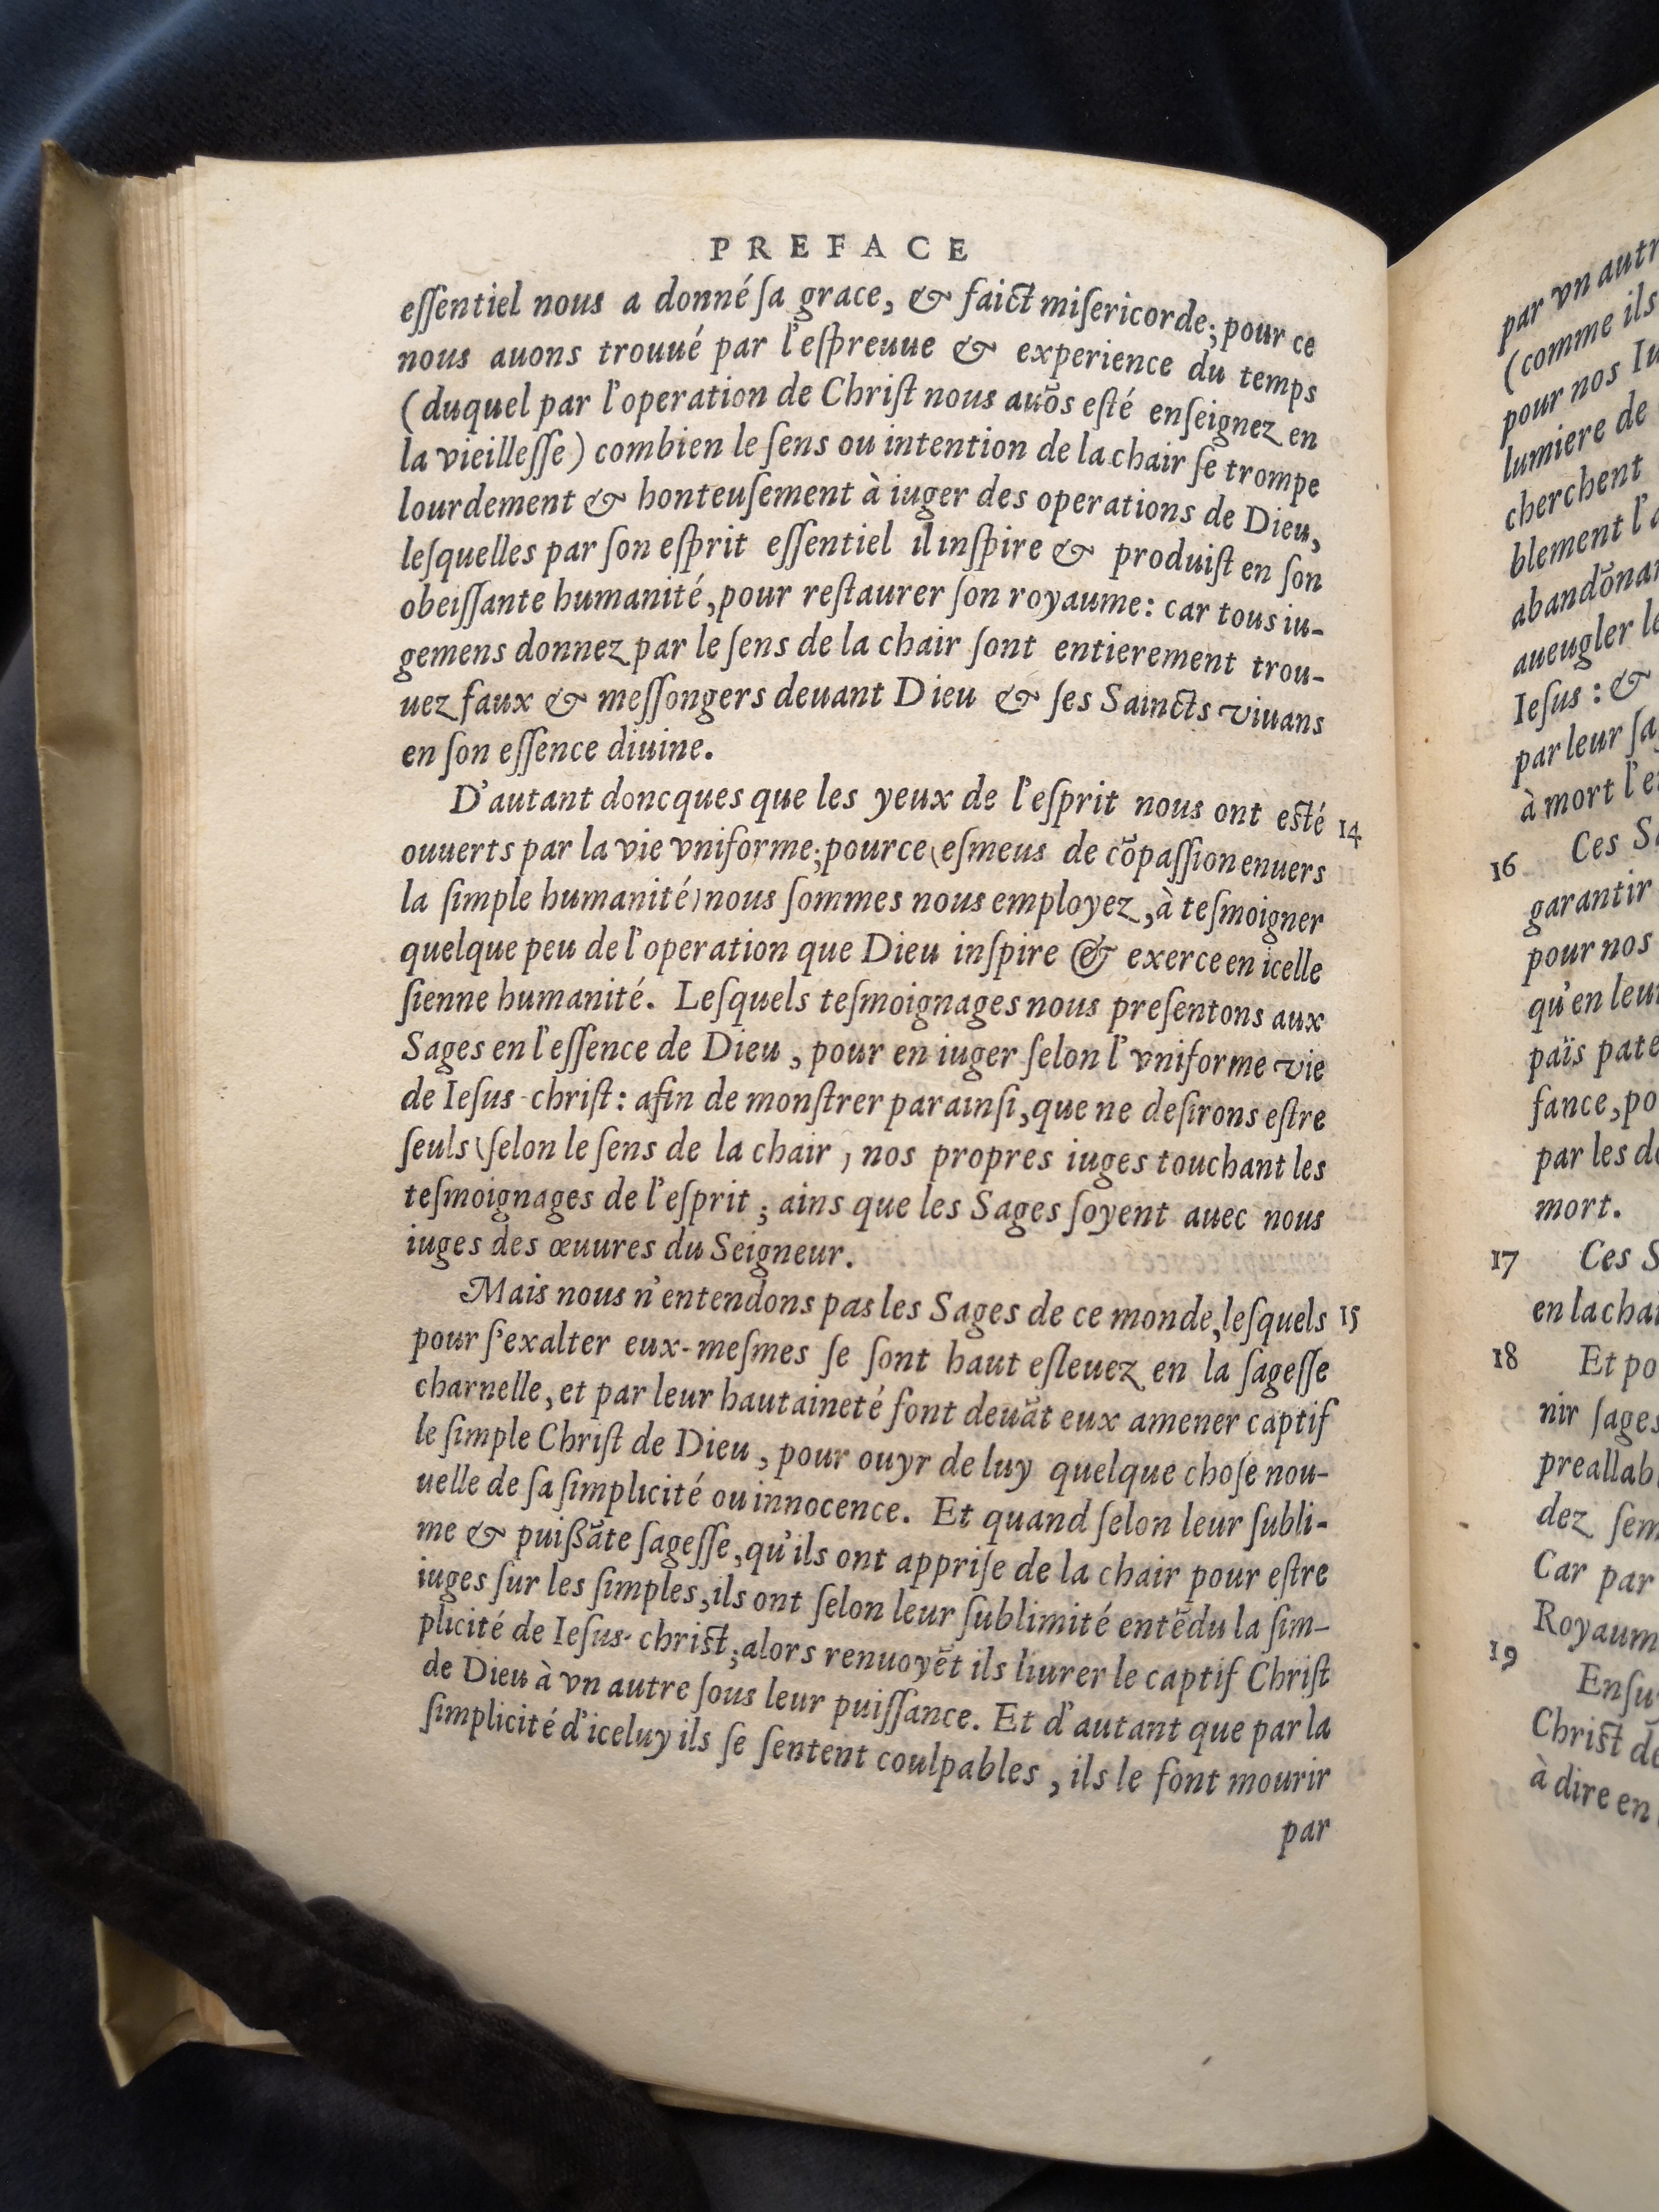 PREFACE
eſſentiel nous a donné ſa grace, & faict miſericorde; pour ce
nous auons trouué par l'eſpreuue & experience du temps
(duquel par l'operation de Chriſt nous auõs eſté enſeignez en
la vieilleſſe) combien le ſens ou intention de la chair ſe trompe
lourdement & honteuſement à iuger des operations de Dieu,
leſquelles par ſon eſprit eſſentiel il inſpire & produiſt en ſon
obeiſſante humanité, pour reſtaurer ſon royaume: car tous iu-
gemens donnez par le ſens de la chair ſont entierement trou-
uez faux & meſſongers deuant Dieu & ſes Saincts viuans
en ſon eſſence diuine.
D'autant doncques que les yeux de l'eſprit nous ont eſté 14
ouuerts par la vie vniforme; pource (eſmeus de cõpaſſion enuers
la ſimple humanité) nous ſommes nous employez, à teſmoigner
quelque peu de l'operation que Dieu inſpire & exerce en icelle
ſienne humanité. Leſquels teſmoignages nous preſentons aux
Sages en l'eſſence de Dieu, pour en iuger ſelon l'vniforme vie
de Ieſus-chriſt: afin de monſtrer par ainſi, que ne deſirons eſtre
ſeuls (ſelon le ſens de la chair) nos propres iuges touchant les
teſmoignages de l'eſprit; ains que les Sages ſoyent auec nous
iuges des œuures du Seigneur.
Mais nous n'entendons pas les Sages de ce monde, leſquels 15
pour ſ'exalter eux-meſmes ſe ſont haut eſleuez en la ſageſſe
charnelle, et par leur hautaineté font deuãt eux amener captif
le ſimple Chriſt de Dieu, pour ouyr de luy quelque choſe nou-
uelle de ſa ſimplicité ou innocence. Et quand ſelon leur ſubli-
me & puißãte ſageſſe, qu'ils ont appriſe de la chair pour eſtre
iuges ſur les ſimples, ils ont ſelon leur ſublimité entẽdu la ſim-
plicité de Ieſus-chriſt; alors renuoyẽt ils liurer le captif Chriſt
de Dieu à vn autre ſous leur puiſſance. Et d'autant que par la
ſimplicité d'iceluy ils ſe ſentent coulpables, ils le font mourir
par
par vn autr
(comme ils
pour nos Iu
lumiere de
cherchent
blement l'a
abandõnan
aueugler le
Ieſus: &
par leur ſa
à mort l'e
16 Ces S
garantir
pour nos
qu'en leur
païs pate
ſance, po
par les d
mort.
17 Ces S
en la chai
18 Et po
nir ſages
preallab
dez ſem
Car par
Royaum
19 Enſu
Chriſt de
à dire en